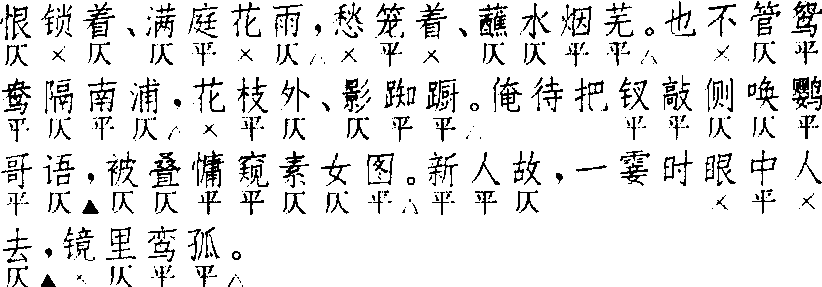 恨锁着、满庭花雨，愁笼着、蘸水烟芜。也不管鸳
仄×仄 仄平×仄△×平× 仄仄平平△ ×仄平
鸯隔南浦，花枝外、影踟蹰。俺待把钗敲侧唤鹦
平仄平仄△×平仄 仄平平△ 平平仄仄平
哥语，被叠慵窥素女图。新人故，一霎时眼中人
平仄▲仄仄平平仄仄平△平平仄 ×平×
去，镜里鸾孤。
仄▲×仄平平△